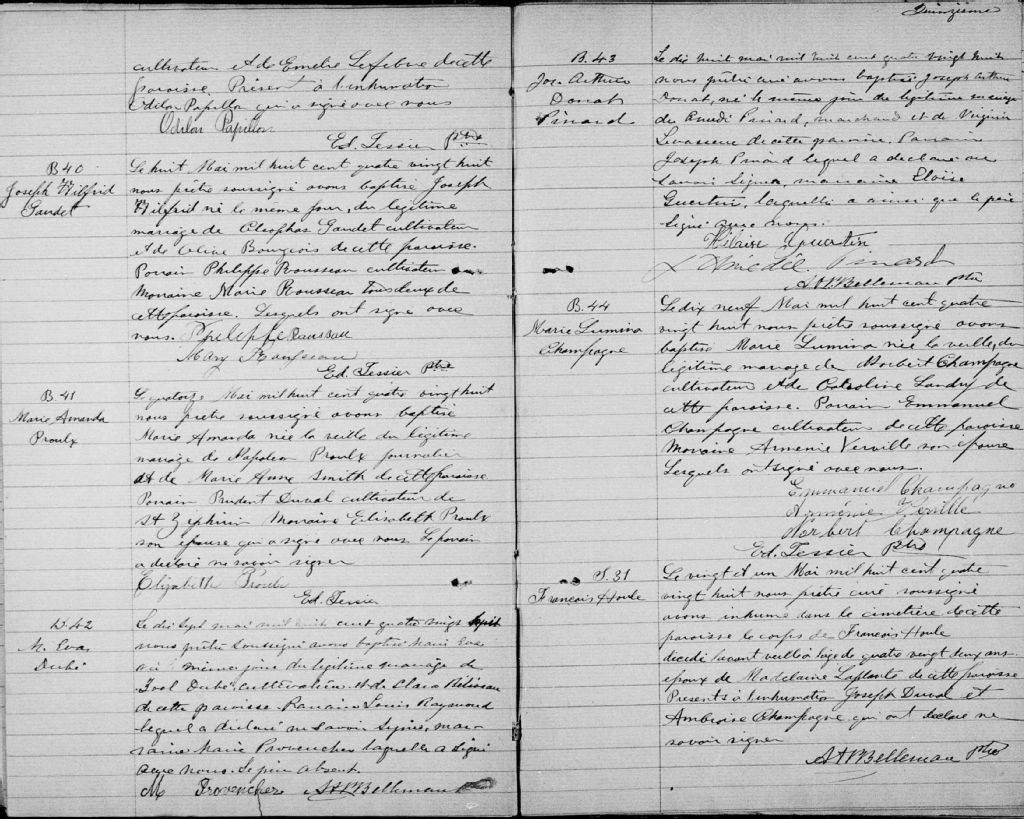 cultivateur et de Emelie Lefebvre de cette
paroisse. Présent à l'inhumation
Odilon Papillon qui a signé avec nous
Odilon Papillon
Ed. Tessier Ptre
B 40
Joseph Wilfrid
Gaudet
Le huit Mai mil huit cent quatre vingt huit
nous prêtre soussigné avons baptisé Joseph
Wilfrid né le même jour, du légitime
mariage de Cléophas Gaudet cultivateur
et de Olive Bourgeois de cette paroisse.
Parrain Philippe Rousseau cultivateur
Marraine Marie Rousseau tous deux de
cette paroisse. Lesquels ont signé avec
nous. Philippe Rousseau
Mary Rousseau
Ed. Tessier Ptre
B 41
Marie Amanda
Proulx
Le quatorze Mai mil huit cent quatre vingt huit
nous prêtre soussigné avons baptisé
Marie Amanda née la veille du légitime
mariage de Napoléon Proulx journalier
et de Marie Anne Smith de cette paroisse.
Parrain Prudent Duval cultivateur de
St Zephirin Marraine Elisabeth Proulx
son épouse qui a signé avec nous Le parrain
a déclaré ne savoir signer
Elizabeth Proulx
Ed. Tessier
B. 42
M. Eva
Dubé
Le dix sept mai mil huit cent quatre vingt huit
nous prêtre soussigné avons baptisé Marie Eva
même jour du légitime mariage de
Joel Dubé, cultivateur et de Clara Béliveau
de cette paroisse. Parrain Louis Raymond
lequel a déclaré ne savoir signer, mar-
raine Marie Provencher laquelle a signé
avec nous. Le père absent.
M Provencher A H Bellemare Ptre
Quinzième
B. 43
Jos. Arthur
Donat
Pinard
Le dix huit mai mil huit cent quatre vingt huit
nous prêtre curé avons baptisé Joseph Arthur
Donat, né le même jour du légitime mariage
de Pinard, marchand et de Virginie
Levasseur de cette paroisse. Parrain
Joseph Pinard lequel a déclaré ne
savoir signer, marraine Eloise
Guertin, laquelle a ainsi que le père
signé avec nous.
Hilaire Guertin
Pinard
A H Bellemare Ptre
B. 44
Marie Lumina
Champagne
Le dix neuf Mai mil huit cent quatre
vingt huit nous prêtre soussigné avons
baptisé Marie Lumina née la veille, du
légitime mariage de Norbert Champagne
cultivateur et de Caroline Landry de
cette paroisse. Parrain Emmanuel
Champagne cultivateur de cette paroisse
Marraine Arménie Verville son épouse
Lesquels ont signé avec nous.
Emmanuel Champagne
Arménie Verville
Norbert Champagne
Ed. Tessier Ptre
S. 31
Francois Houle
Le vingt et un Mai mil huit cent quatre
vingt huit nous prêtre curé soussigné
avons inhumé dans le cimetière de cette
paroisse le corps de Francois Houle
décédé l'avant veille à l'age de quatre vingt deux ans
époux de Madelaine Laplante de cette paroisse
Présents à l'inhumation Joseph Duval et
Ambroise Champagne qui ont déclaré ne
savoir signer
A H Bellemare Ptre